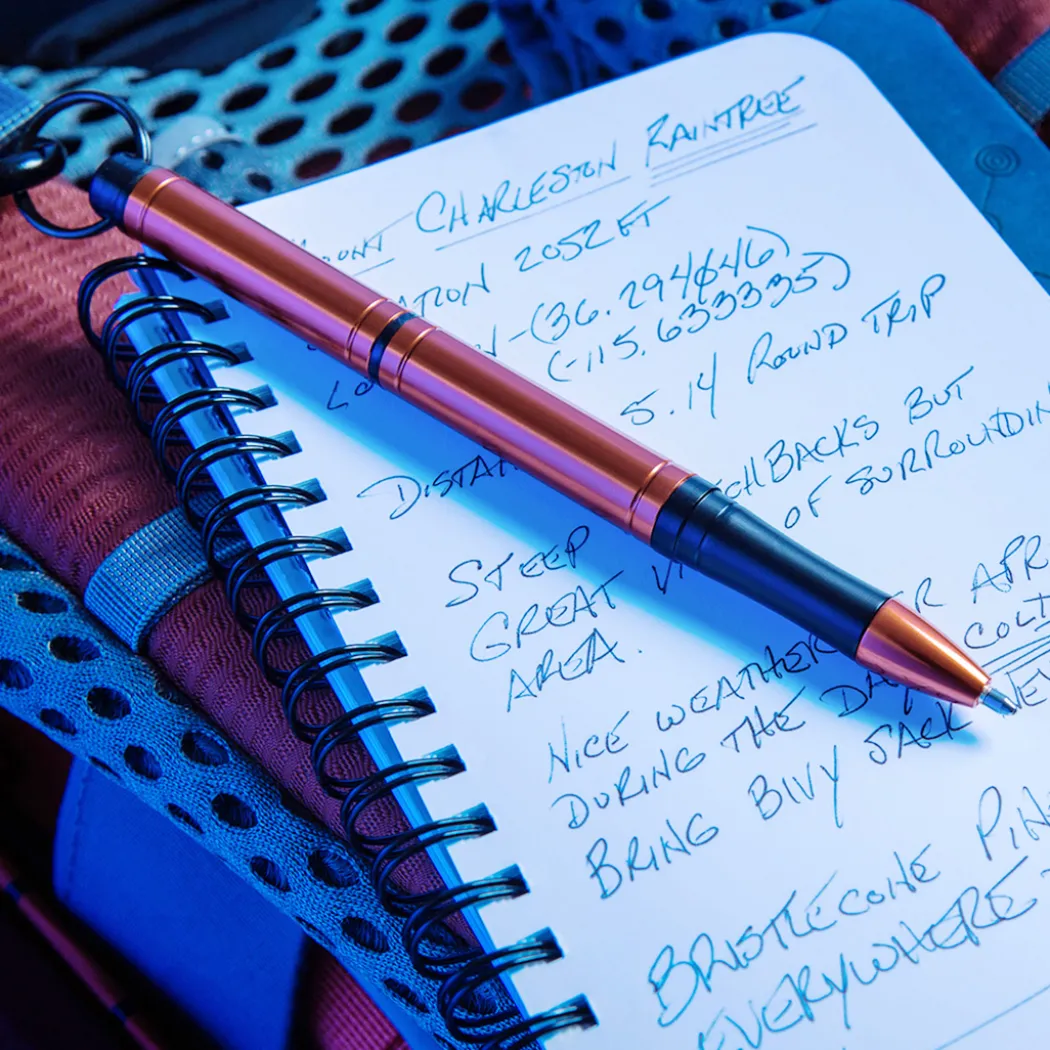 OUNT CHARLESTON RAINTREE
ATION 2052 FT
N-(36.294646)
LO (-115.633335)
DISTA 5.14 ROUND TRIP
STEEP CHBACKS BUT
GREAT VI OF SURROUNDIN
AREA.
NICE WEATHER R APR
DURING THE DAY COLD
BRING BIVY JACK
BRISTLECONE PIN
EVERYWHERE